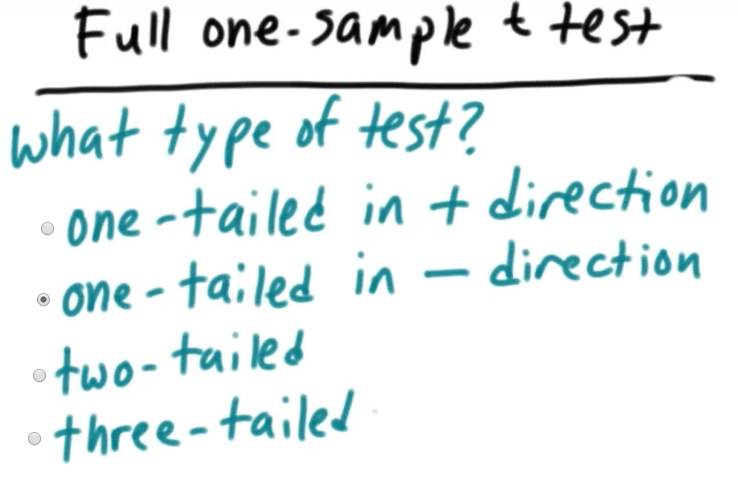 Full one-sample t test
what type of test?
one-tailed in + direction
one-tailed in - direction
two-tailed
three-tailed